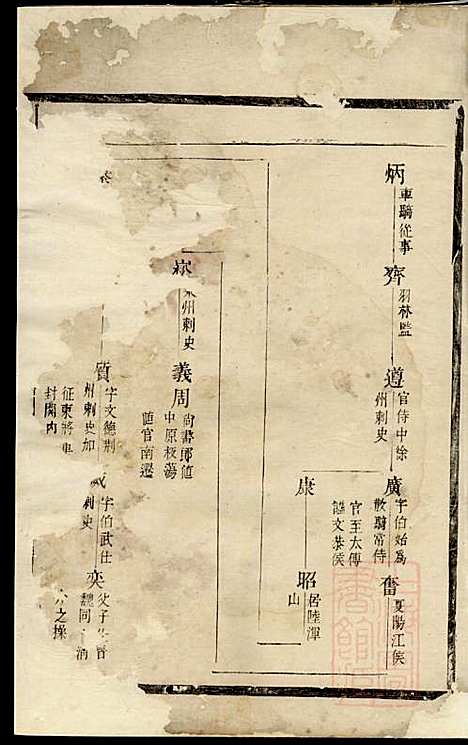 炳
車騎從事
齊
羽林監
遵
官侍中徐
州刺史
廣
字伯始為
散騎常侍
奮
夏陽江侯
康
官至太傅
諡文恭侯
昭
居陸渾
山
州刺史
義周
尚書郎值
中原板蕩
隨官南遷
質
字文德荆
州刺史加
征東將軍
封關內
威
字伯武仕
刺史
奕
父子
魏同
之操